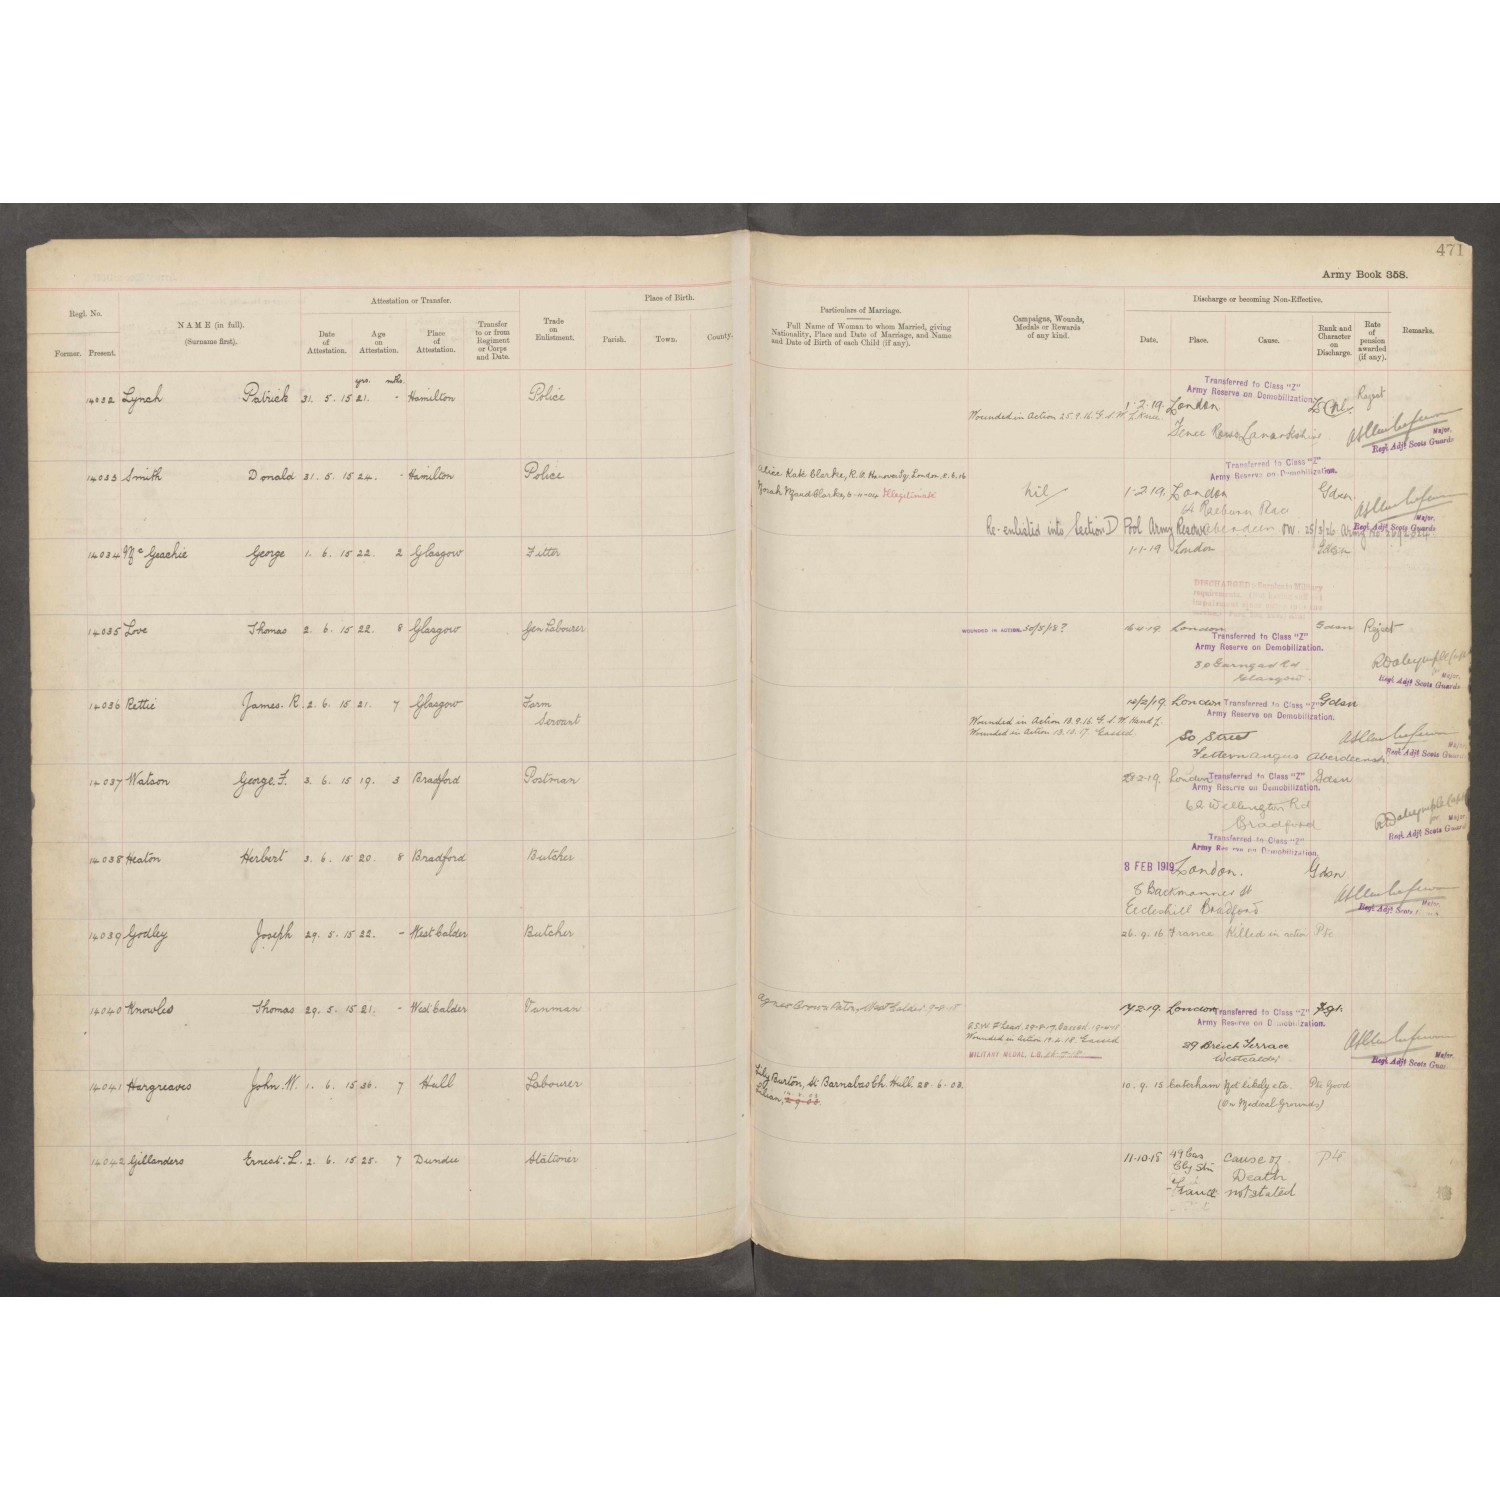 471
Army Book 358.
Regl. No.
Former. Present.
NAME (in full).
(Surname first).
Attestation or Transfer.
Date of Attestation.
Age on Attestation.
Place of Attestation.
Transfer to or from Regiment or Corps and Date.
Trade on Enlistment.
Place of Birth.
Parish. Town. County.
Particulars of Marriage.
Full Name of Woman to whom Married, giving Nationality, Place and Date of Marriage, and Name and Date of Birth of each Child (if any).
Campaigns, Wounds, Medals or Rewards of any kind.
Discharge or becoming Non-Effective.
Date. Place. Cause.
Rank and Character on Discharge.
Rate of pension awarded (if any).
Remarks.
yrs. mths.
14032 Lynch Patrick 31. 5. 15 21. - Hamilton Police
Wounded in Action 25.9.16 G.S.W.
Transferred to Class "Z"
Army Reserve on Demobilization.
1.2.19. London
Reject
Major.
Regl. Adjt Scots Guards
14033 Smith Donald 31. 5. 15 24. - Hamilton Police
Alice Kate Clarke, R.O. Hanover Sq. London,
Norah Maud Clarke, Illegitimate
Nil
Transferred to Class "Z"
Army Reserve on Demobilization.
1.2.19. London Gdsn
Major.
Regl. Adjt Scots Guards
Re-enlisted into Section D Pool Army Reserve Aberdeen on 25/3/26
14034 McGeachie George 1. 6. 15 22. 2 Glasgow Fitter
1.1.19 London Gdsn
DISCHARGED
14035 Love Thomas 2. 6. 15 22. 8 Glasgow Gen Labourer
WOUNDED IN ACTION 30/5/18?
London Gdsn Reject
Transferred to Class "Z"
Army Reserve on Demobilization.
30 Garngad Rd
Glasgow
Major.
Regl. Adjt Scots Guards
14036 Rettie James. R. 2. 6. 15 21. 7 Glasgow Farm Servant
Wounded in Action G.S.W. Hand
Wounded in Action 13.10.17. Gassed
12/2/19. London Transferred to Class "Z" Gdsn
Army Reserve on Demobilization.
So Street
Fetterangus Aberdeensh.
Regl. Adjt Scots Guards
14037 Watson George. F. 3. 6. 15 19. 3 Bradford Postman
London Transferred to Class "Z" Gdsn
Army Reserve on Demobilization.
62 Wellington Rd
Bradford
Major
Regl. Adjt Scots Guards
14038 Heaton Herbert 3. 6. 15 20. 8 Bradford Butcher
Transferred to Class "Z"
Army Reserve on Demobilization.
8 FEB 1919 London. Gdsn
8 Backmanner St
Eccleshill Bradford
Major.
14039 Godley Joseph 29. 5. 15 22. - West Calder Butcher
26. 9. 16 France Killed in action Pte
14040 Knowles Thomas 29. 5. 15 21. - West Calder Vanman
G.S.W. Head. Gassed
Wounded in Action 19.4.18 Gassed
MILITARY MEDAL, L.G.
London Transferred to Class "Z"
Army Reserve on Demobilization.
29 Breich Terrace
West Calder
Major.
Regl. Adjt Scots Guards
14041 Hargreaves John. W. 1. 6. 15 36. 7 Hull Labourer
Lily Burton, St Barnabas Ch. Hull. 28. 6. 03.
Lilian,
10. 9. 15 Caterham Not likely etc. Pte Good
(On Medical Grounds)
14042 Gillanders Ernest. L. 2. 6. 15 25. 7 Dundee Stationer
11.10.15 Cas Clg Stn France
Cause of Death not stated
Pte